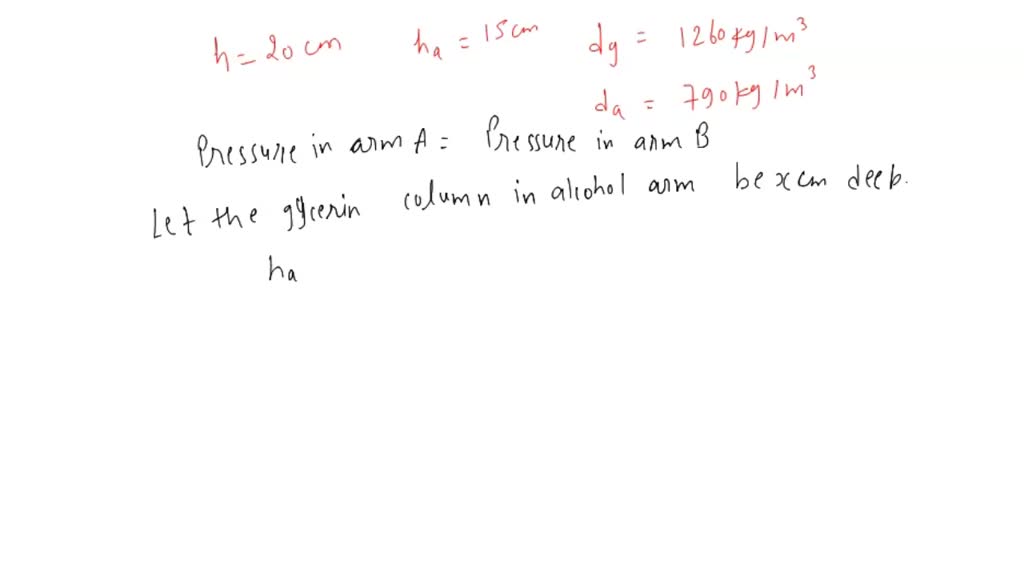 h = 20 cm   ha = 15 cm   dg = 1260 kg/m³
da = 790 kg/m³
Pressure in arm A = Pressure in arm B
Let the glycerin column in alcohol arm be x cm deep.
ha